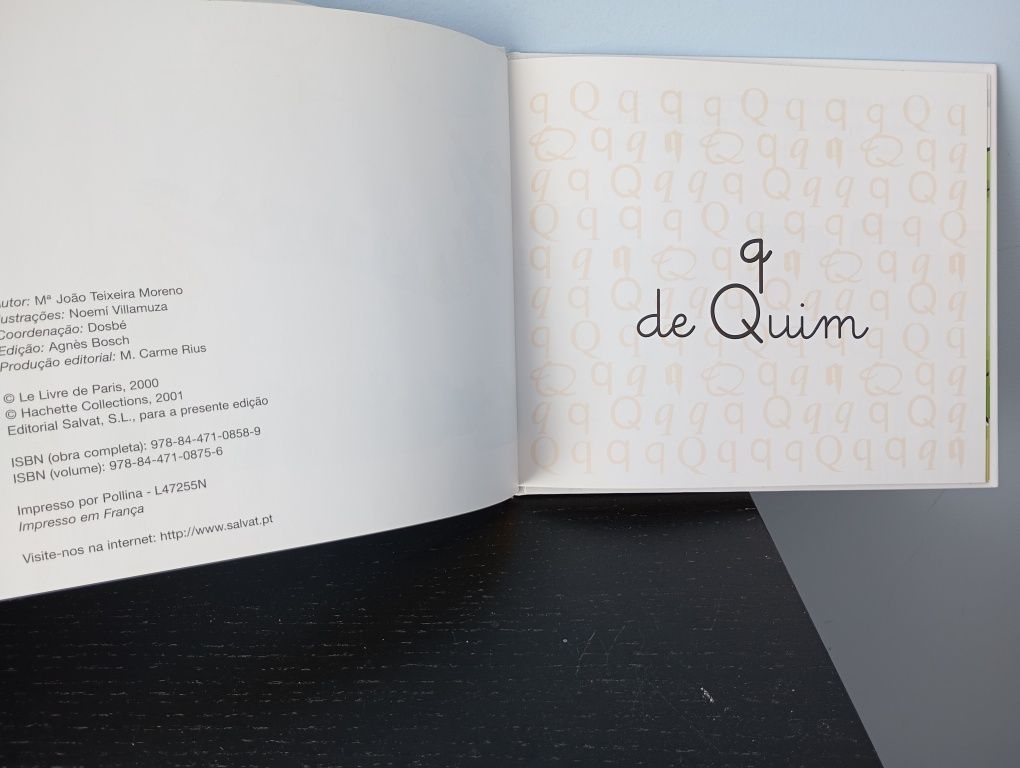 utor: Mª João Teixeira Moreno
ustrações: Noemí Villamuza
Coordenação: Dosbé
Edição: Agnès Bosch
Produção editorial: M. Carme Rius
© Le Livre de Paris, 2000
© Hachette Collections, 2001
Editorial Salvat, S.L., para a presente edição
ISBN (obra completa): 978-84-471-0858-9
ISBN (volume): 978-84-471-0875-6
Impresso por Pollina - L47255N
Impresso em França
Visite-nos na internet: http://www.salvat.pt
q Q q q q Q q q q Q q
Q q q q Q q q q Q q q
q q Q q q q Q q q q Q q
Q q q q Q q q q q q Q
q
de Quim